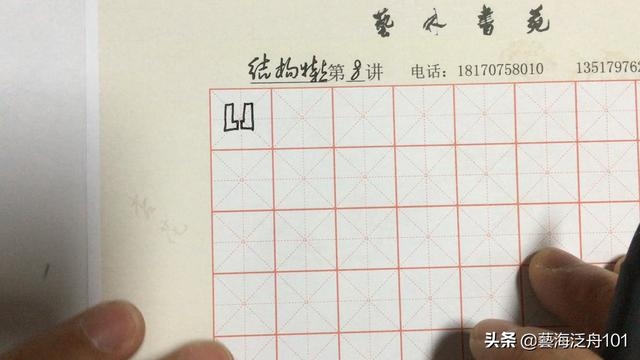 藝 書 苑
结构特点第8讲 电话：18170758010 135179762
头条 @藝海泛舟101